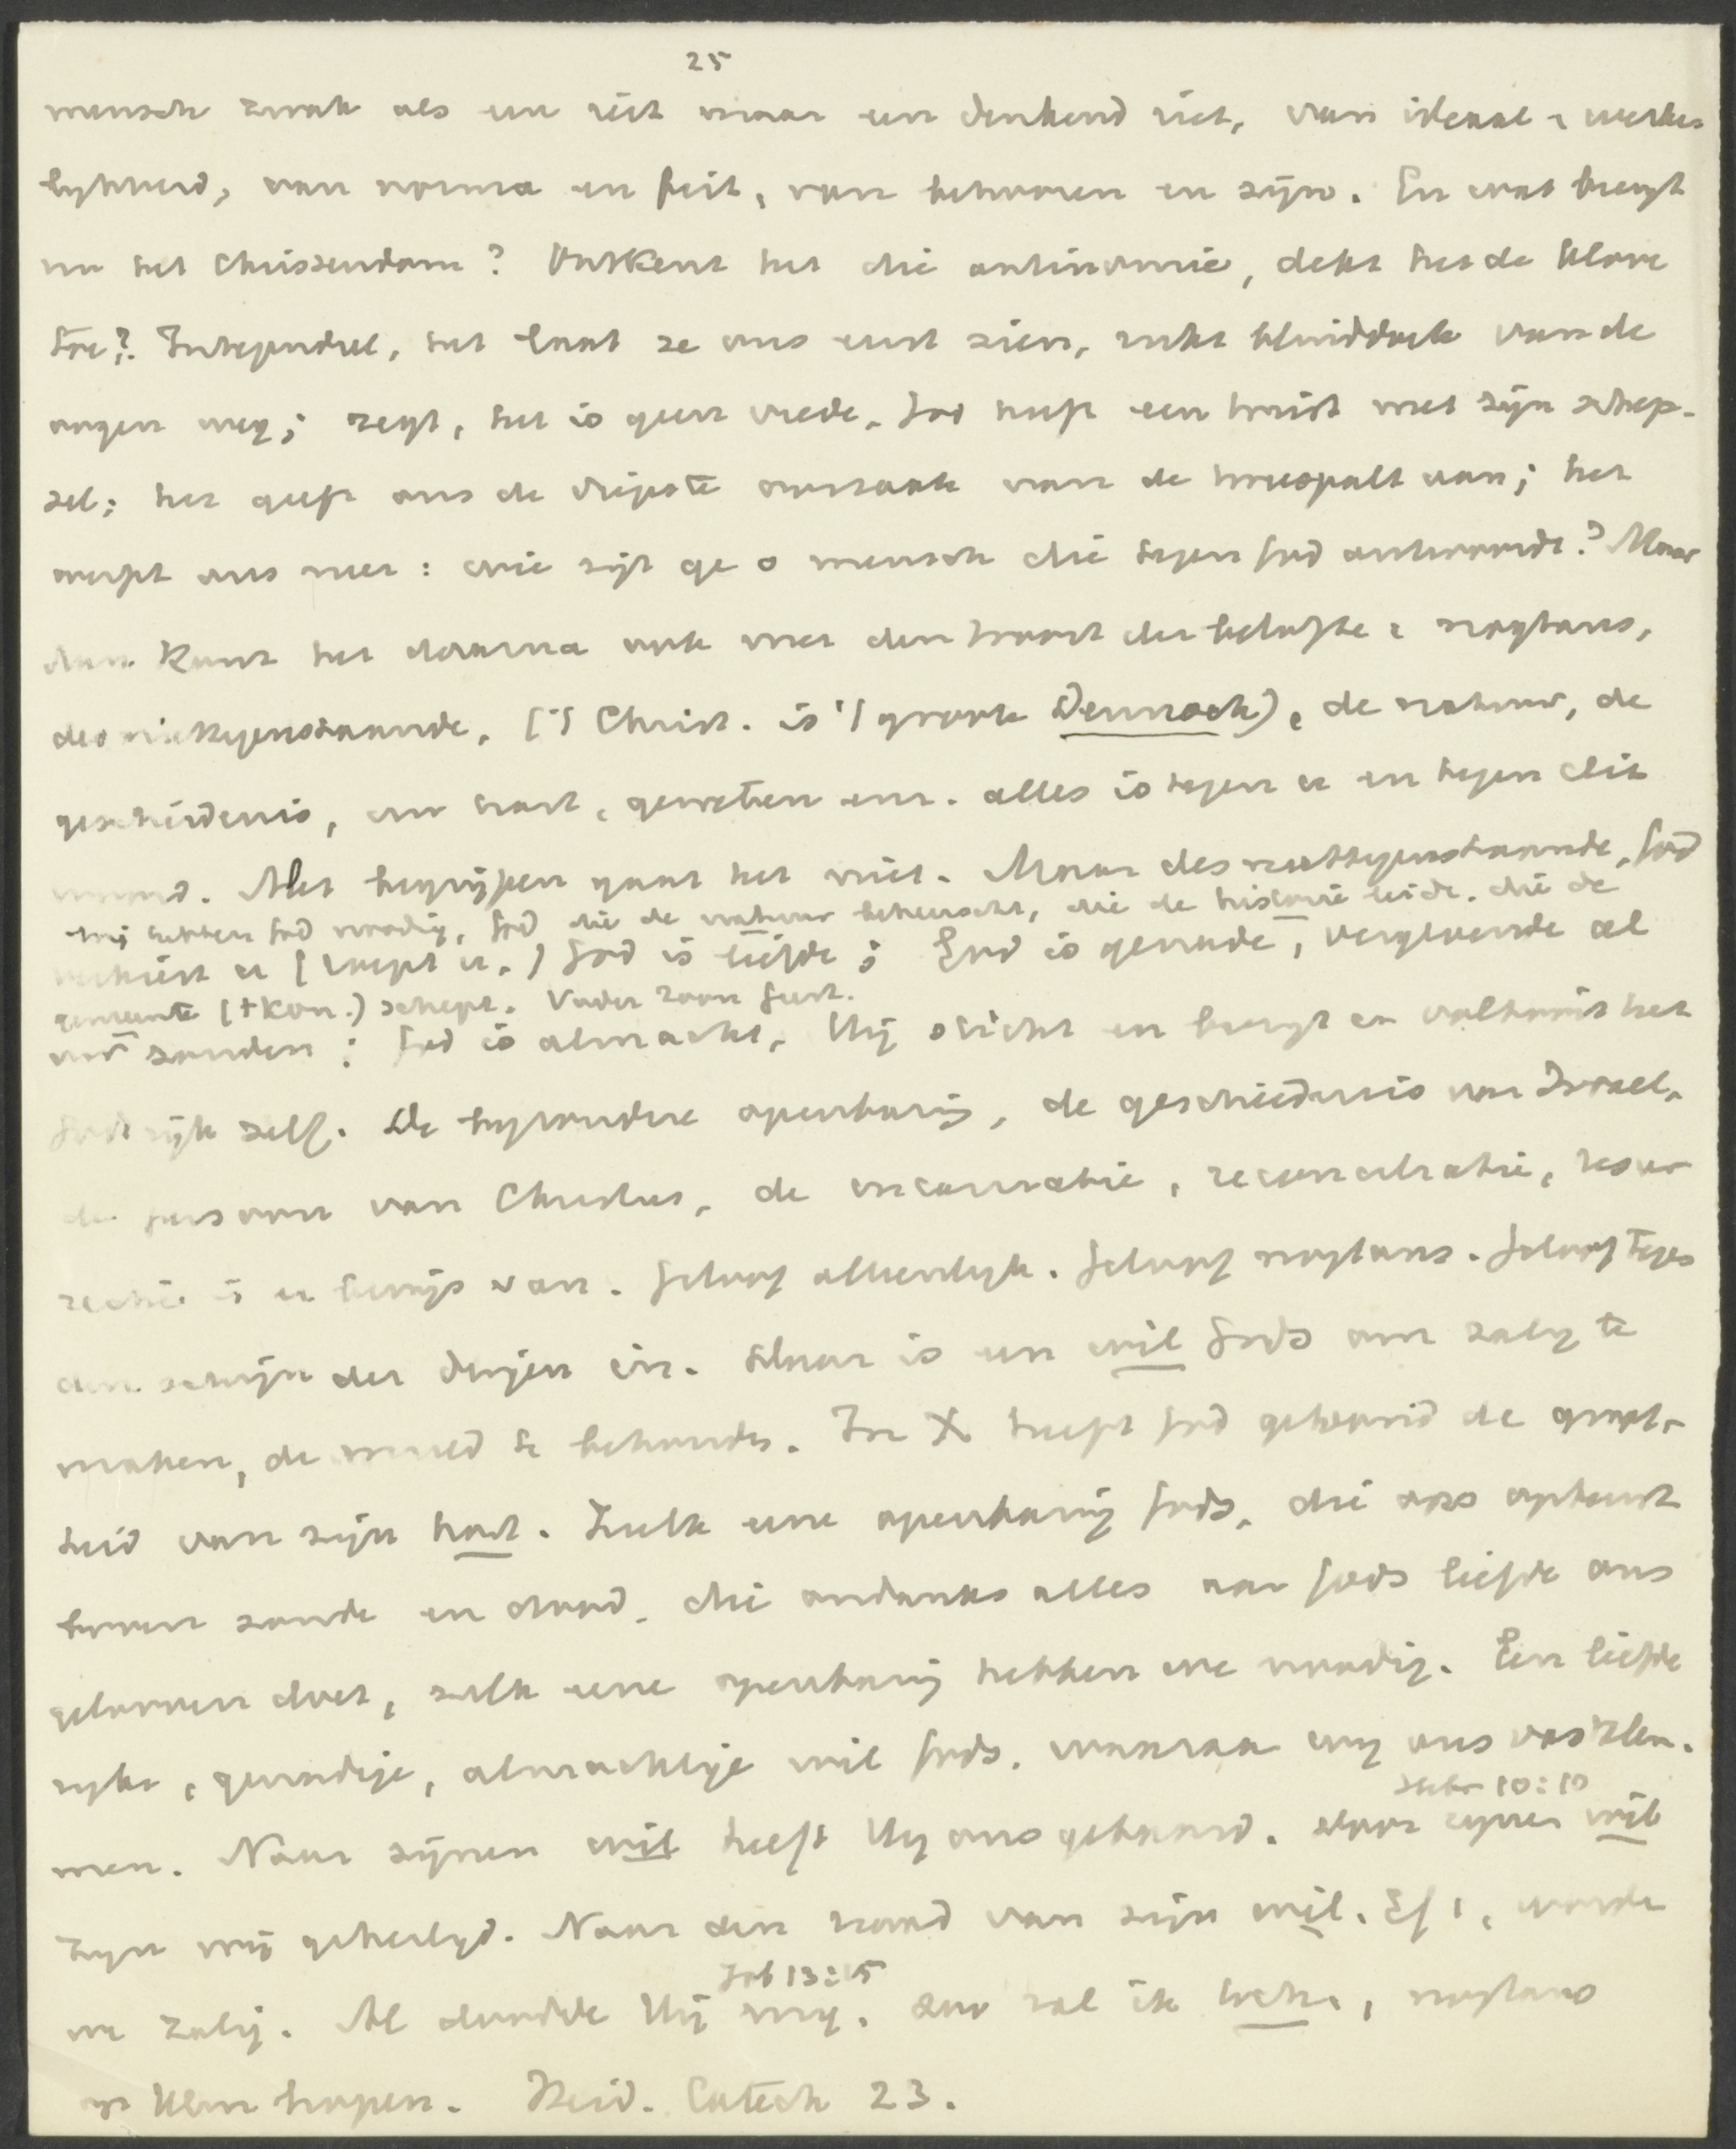 25
mensch zwak als een riet maar een denkend riet, van ideaal & werke-
lijkheid, van norma en feit, van behooren en zijn. En wat brengt
nu het Christendom? Ontkent het die antinomie, dekt het de klove
toe? Integendeel, het laat ze ons eerst zien, rukt blinddoek van de
oogen weg; zegt, het is geen vrede, God heeft een twist met zijn schep-
sel; het geeft ons de diepste oorzaak van de tweespalt aan; het
werpt ons neer: wie zijt ge o mensch die tegen God antwoordt? Maar
dan komt het daarna ook met den troost der belofte: nogtans,
desniettegenstaande, ('t Christ. is 't groote Dennoch), de natuur, de
geschiedenis, uw hart, geweten enz. alles is tegen u en tegen dit
woord. Met begrijpen gaat het niet. Maar desniettegenstaande, God
wij hebben God noodig, God die de natuur beheerscht, die de historie leidt, die de
verkiest u (roept u,) God is liefde; God is genade, vergevende al
gemeente (+ Kon.) schept. Vader Zoon Geest.
uw zonden; God is almacht, Hij sticht en brengt en voltooit het
Godsrijk zelf. De bijzondere openbaring, de geschiedenis van Israel,
de persoon van Christus, de incarnatie, reconciliatie, resur
rectie is er bewijs van. Geloof alleenlijk. Geloof nogtans. Geloof tegen
den schijn der dingen in. Daar is een wil Gods om zalig te
maken, de wereld te behouden. In X heeft God getoond de groot-
heid van zijn hart. Zulk eene openbaring Gods, die ons opheft
boven zonde en dood, die ondanks alles aan Gods liefde ons
gelooven doet, zulk eene openbaring hebben we noodig. Een liefde
rijke, genadige, almachtige wil Gods, waaraan wij ons vastklem-
Hebr 10:10
men. Naar zijnen wil heeft Hij ons gebaard. door zijnen wil
zijn wij geheiligd. Naar den raad van zijn wil, Ef 1, worden
Job 13:15
we zalig. Al doodde Hij mij, zou zal ik nogtans
op Hem hopen. Heid. Catech 23.